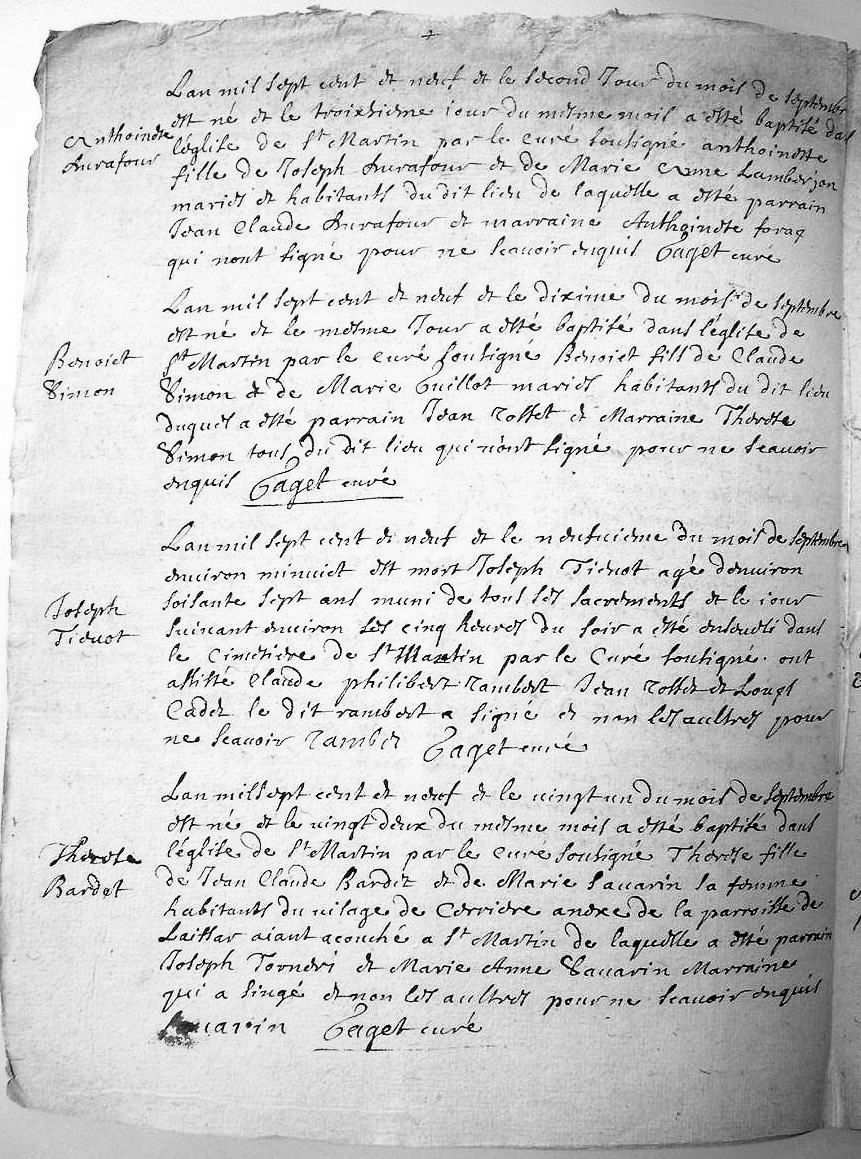 +
Lan mil sept cent et neuf et le second Jour du mois de septembre
est né et le troixsieme iour du mesme mois a esté baptisé dans
Anthoinette
léglise de St Martin par le curé soubsigné anthoinette
Aurafour
fille de Joseph Aurafour et de Marie Lamberjon
mariés et habitants du dit lieu de laquelle a esté parrain
Jean Claude Aurafour et marraine Anthoinette
qui nont signé pour ne scavoir enquis Paget curé
Lan mil sept cent et neuf et le dixime du mois de septembre
est né et le mesme Jour a esté baptisé dans léglise de
Benoict
St Martin par le curé soussigné Benoict fils de Claude
Simon
Simon et de Marie Guillot mariés habitants du dit lieu
duquel a esté parrain Jean rosset et Marraine Therese
Simon tous du dit lieu qui nont signé pour ne scavoir
enquis Paget curé
Lan mil sept cent et neuf et le neufuieme du mois de septembre
environ minuict est mort Joseph Tieuot agé denuiron
Joseph
soisante sept ans muni de tous ses sacrements et le iour
Tieuot
suiuant enuiron les cinq heures du soir a esté enseueli dans
le cimetiere de St Martin par le Curé soussigné. ont
assisté Claude philibert rambert Jean rosset et Louys
Cadet le dit rambert a signé et non les aultres pour
ne scavoir rambert Paget curé
Lan mil sept cent et neuf et le uingt un du mois de septembre
est né et le uingt deux du mesme mois a esté baptisé dans
Therese
léglise de St Martin par le curé soussigné Therese fille
Bardet
de Jean Claude Bardet et de Marie Sauarin sa femme
habitants du uilage de Cerriere anexe de la parroisse de
Laissar aiant acouché a St Martin de laquelle a esté parrain
Joseph Torneri et Marie Anne Sauarin Marraine
qui a singé et non les aultres pour ne scavoir enquis
Sauarin Paget curé